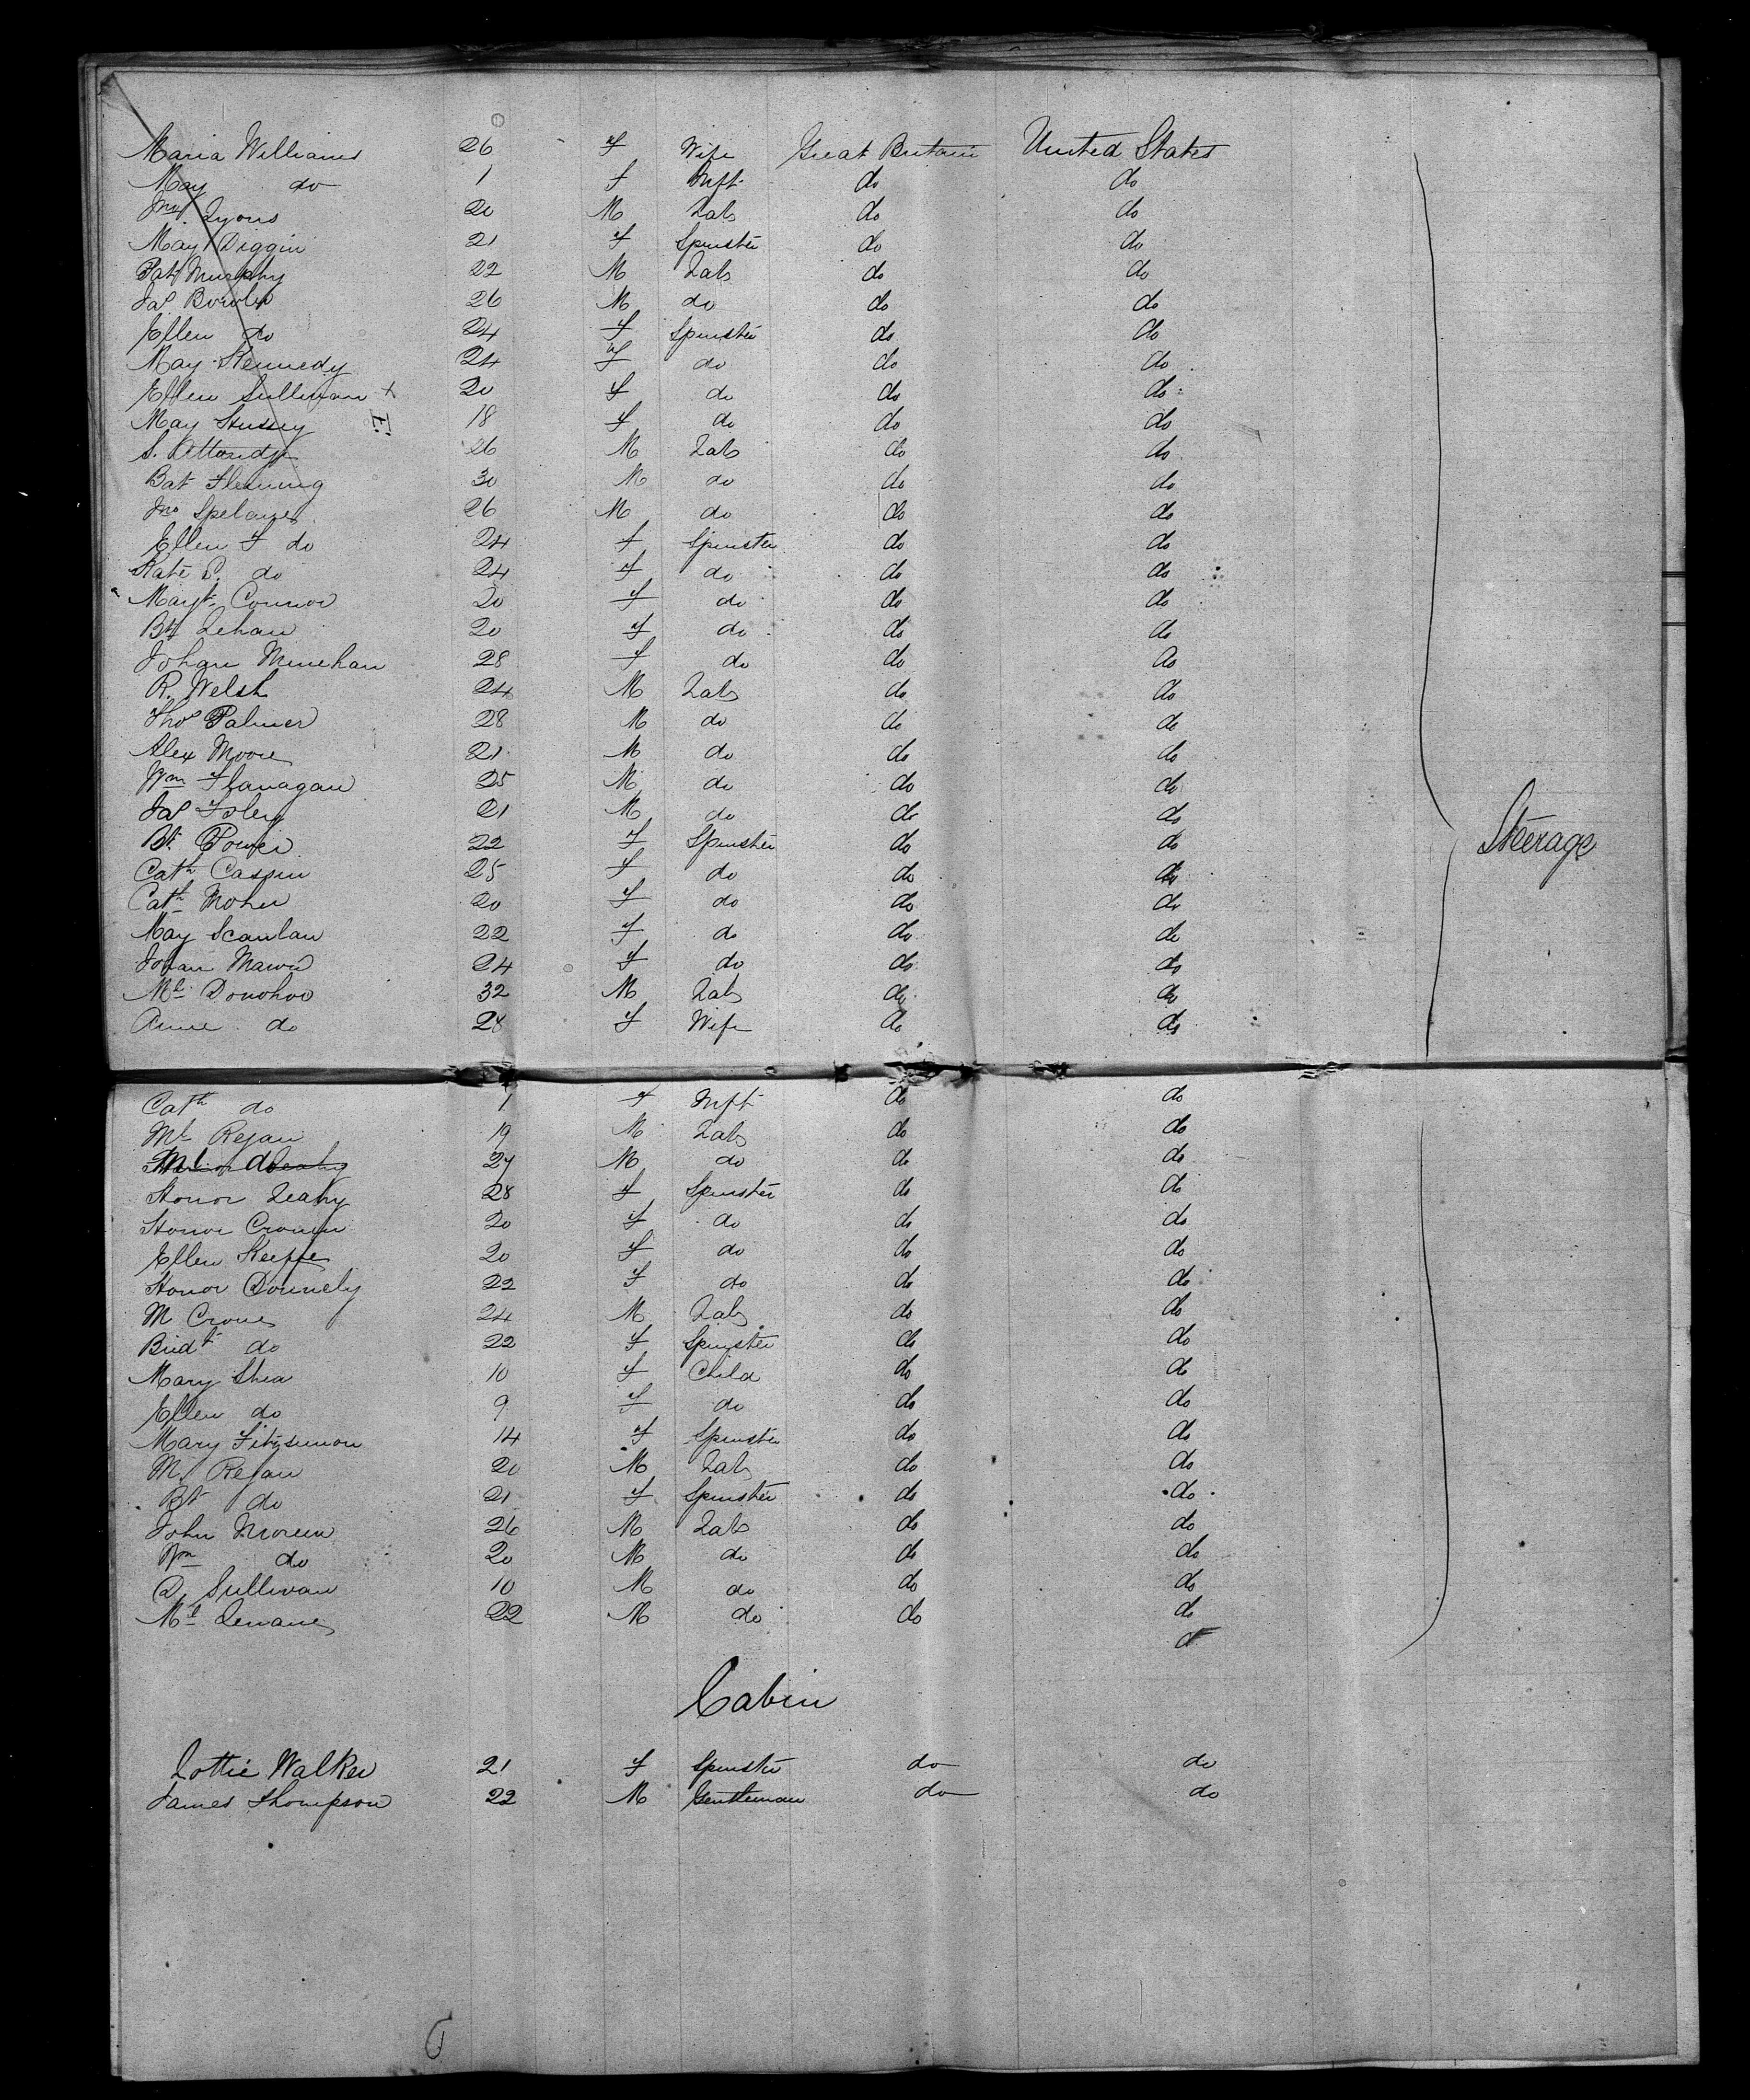 Maria Williams 26 F Wife Great Britain United States
May do 1 F Inft do do
Jno. Lyons 20 M Lab do do
May Diggin 21 F Spinster do do
Pat Murphy 22 M Lab do do
Jas Bowler 26 M do do do
Ellen do 24 F Spinster do do
May Kennedy 24 F do do do
Ellen Sullivan + 20 F do do do
May Hussey 18 F do do do
S. 26 M Lab do do
Bat Fleming 30 M do do do
Jno 26 M do do do
Ellen F do 24 F Spinster do do
Kate do 24 F do do do
Mayt Connor 20 F do do do
Bt Lehan 20 F do do do
Johan Minehan 28 F do do do
R. Welsh 24 M Lab do do
Thos Palmer 28 M do do do
Alex Moore 21 M do do do
Wm Flanagan 25 M do do do
Jas Foley 21 M do do do
Bt. Power 22 F Spinster do do
Cath 25 F do do do
Cath Moher 20 F do do do
May Scanlan 22 F do do do
Johan 24 F do do do
Ml Donohoo 32 M Lab do do
Anne do 28 F Wife do do
Steerage
Cath do 1 F Inft do do
Ml Regan 19 M Lab do do
Ml do 24 M do do do
Honor Leahy 28 F Spinster do do
Honor Cronin 20 F do do do
Ellen Keeffe 20 F do do do
Honor Donnely 22 F do do do
M Crone 24 M Lab do do
Bridt do 22 F Spinster do do
Mary Shea 10 F Child do do
Ellen do 9 F do do do
Mary Fitzsimon 14 F Spinster do do
M. Regan 20 M Lab do do
Bt do 21 F Spinster do do
John 26 M Lab do do
Wm do 20 M do do do
D. Sullivan 10 M do do do
Ml 22 M do do do
Cabin
Lottie Walker 21 F Spinster do do
James Thompson 22 M Gentleman do do